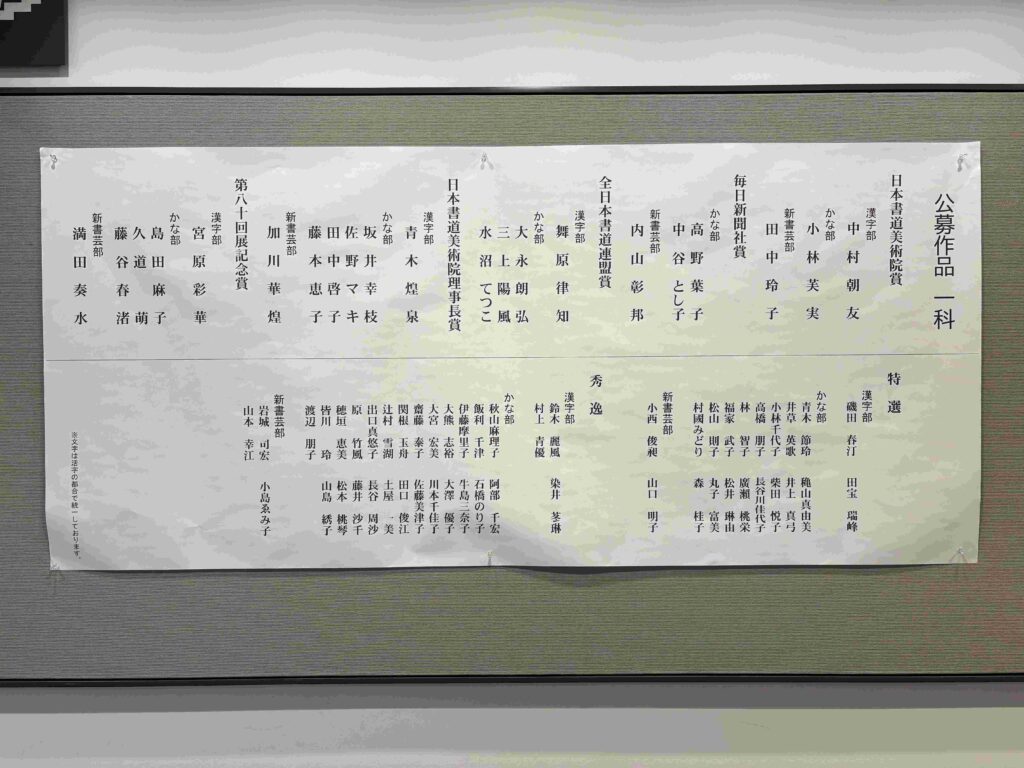 公募作品 一科
日本書道美術院賞
漢字部
中村朝友
かな部
小林芙実
新書芸部
田中玲子
毎日新聞社賞
かな部
高野葉子
中谷とし子
新書芸部
内山彰邦
全日本書道連盟賞
漢字部
舞原律知
かな部
大永朗弘
三上陽風
水沼てつこ
日本書道美術院理事長賞
漢字部
青木煌泉
かな部
坂井幸枝
佐野マキ
田中啓子
藤本恵子
新書芸部
加川華煌
第八十回展記念賞
漢字部
宮原彩華
かな部
島田麻子
久道萌
藤谷春渚
新書芸部
満田奏水
特選
漢字部
磯田 春汀 田宝 瑞峰
かな部
青木 節玲 穐山真由美
井草 英歌 井上 真弓
小林千代子 柴田 悦子
高橋 朋子 長谷川佳代子
林 智子 廣瀬 桃栄
福家 武子 松井 琳由
松山 則子 丸子 富美
村國みどり 森 桂子
新書芸部
小西 俊昶 山口 明子
秀逸
漢字部
鈴木 麗風 染井 荃琳
村上 青優
かな部
秋山麻理子 阿部 千宏
飯利 千津 石橋のり子
伊藤摩里子 牛島三奈子
大熊 志裕 大澤 優子
大宮 宏美 川本千佳子
齋藤 泰子 佐藤美津子
関根 玉舟 田口 俊江
辻村 雪湖 土屋 一美
出口真悠子 長谷 周沙
原 竹風 藤井 沙千
穂垣 恵美 松本 桃琴
皆川 玲 山島 綉子
渡辺 朋子
新書芸部
岩城 司宏 小島ゑみ子
山本 幸江
※文字は活字の都合で統一しております。